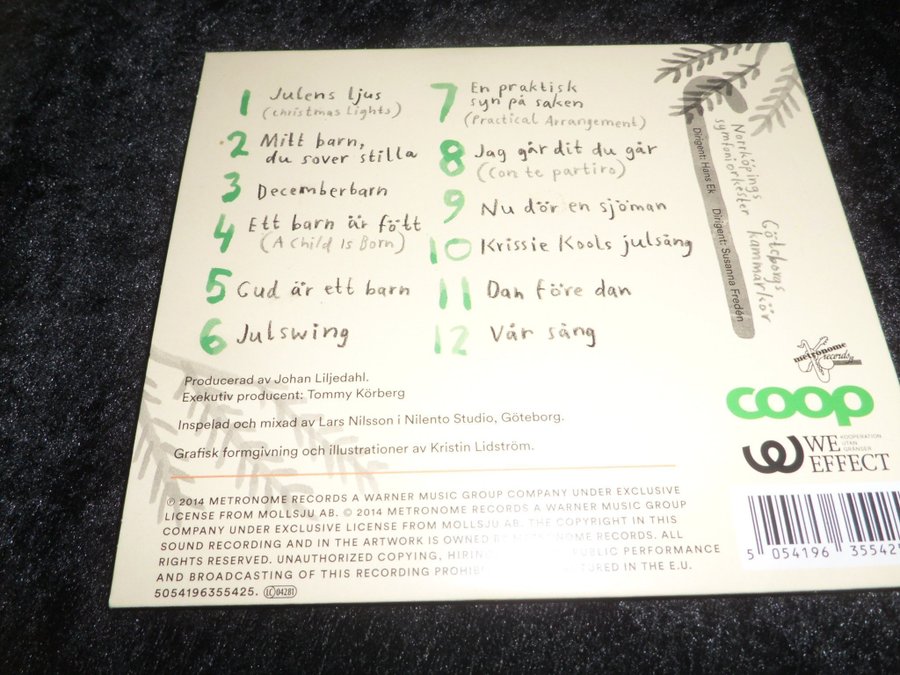 1 Julens ljus
(Christmas Lights)
2 Mitt barn,
du sover stilla
3 Decemberbarn
4 Ett barn är fött
(A Child Is Born)
5 Gud är ett barn
6 Julswing
7 En praktisk
syn på saken
(Practical Arrangement)
8 Jag går dit du går
(Con te partiro)
9 Nu dör en sjöman
10 Krissie Kools julsång
11 Dan före dan
12 Vår sång
Norrköpings
symfoniorkester
Dirigent: Hans Ek
Göteborgs
kammarkör
Dirigent: Susanna Fredén
Producerad av Johan Liljedahl.
Exekutiv producent: Tommy Körberg
Inspelad och mixad av Lars Nilsson i Nilento Studio, Göteborg.
Grafisk formgivning och illustrationer av Kristin Lidström.
metronome
records
coop
WE
EFFECT
KOOPERATION
UTAN
GRÄNSER
℗ 2014 METRONOME RECORDS A WARNER MUSIC GROUP COMPANY UNDER EXCLUSIVE
LICENSE FROM MOLLSJU AB. © 2014 METRONOME RECORDS A WARNER MUSIC GROUP
COMPANY UNDER EXCLUSIVE LICENSE FROM MOLLSJU AB. THE COPYRIGHT IN THIS
SOUND RECORDING AND IN THE ARTWORK IS OWNED BY METRONOME RECORDS. ALL
RIGHTS RESERVED. UNAUTHORIZED COPYING, HIRING PUBLIC PERFORMANCE
AND BROADCASTING OF THIS RECORDING IN THE E.U.
5054196355425. LC 04281
5 054196 35542